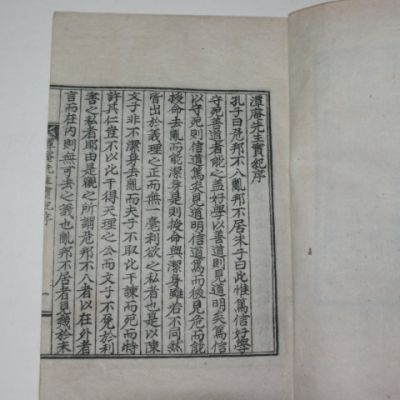 潭庵先生實紀序
孔子曰危邦不入亂邦不居朱子曰此惟篤信好學
守死善道者能之盖好學以善道則見道明矣篤信
以守死則信道篤矣見道明信道篤而後見危而能
授命去亂而能潔身是則授命與潔身雖若不同然
皆出於義理之正而無一毫利欲之私者也是以陳
文子非不潔身去亂而夫子不取以比干諫而死而特
許其仁豈不以比干得天理之公而文子不免於利
害之私者耶由是觀之所謂危邦不入者以在外者
言而在內則無可去之義也亂邦不居者見幾於未
潭庵先生實紀序 一